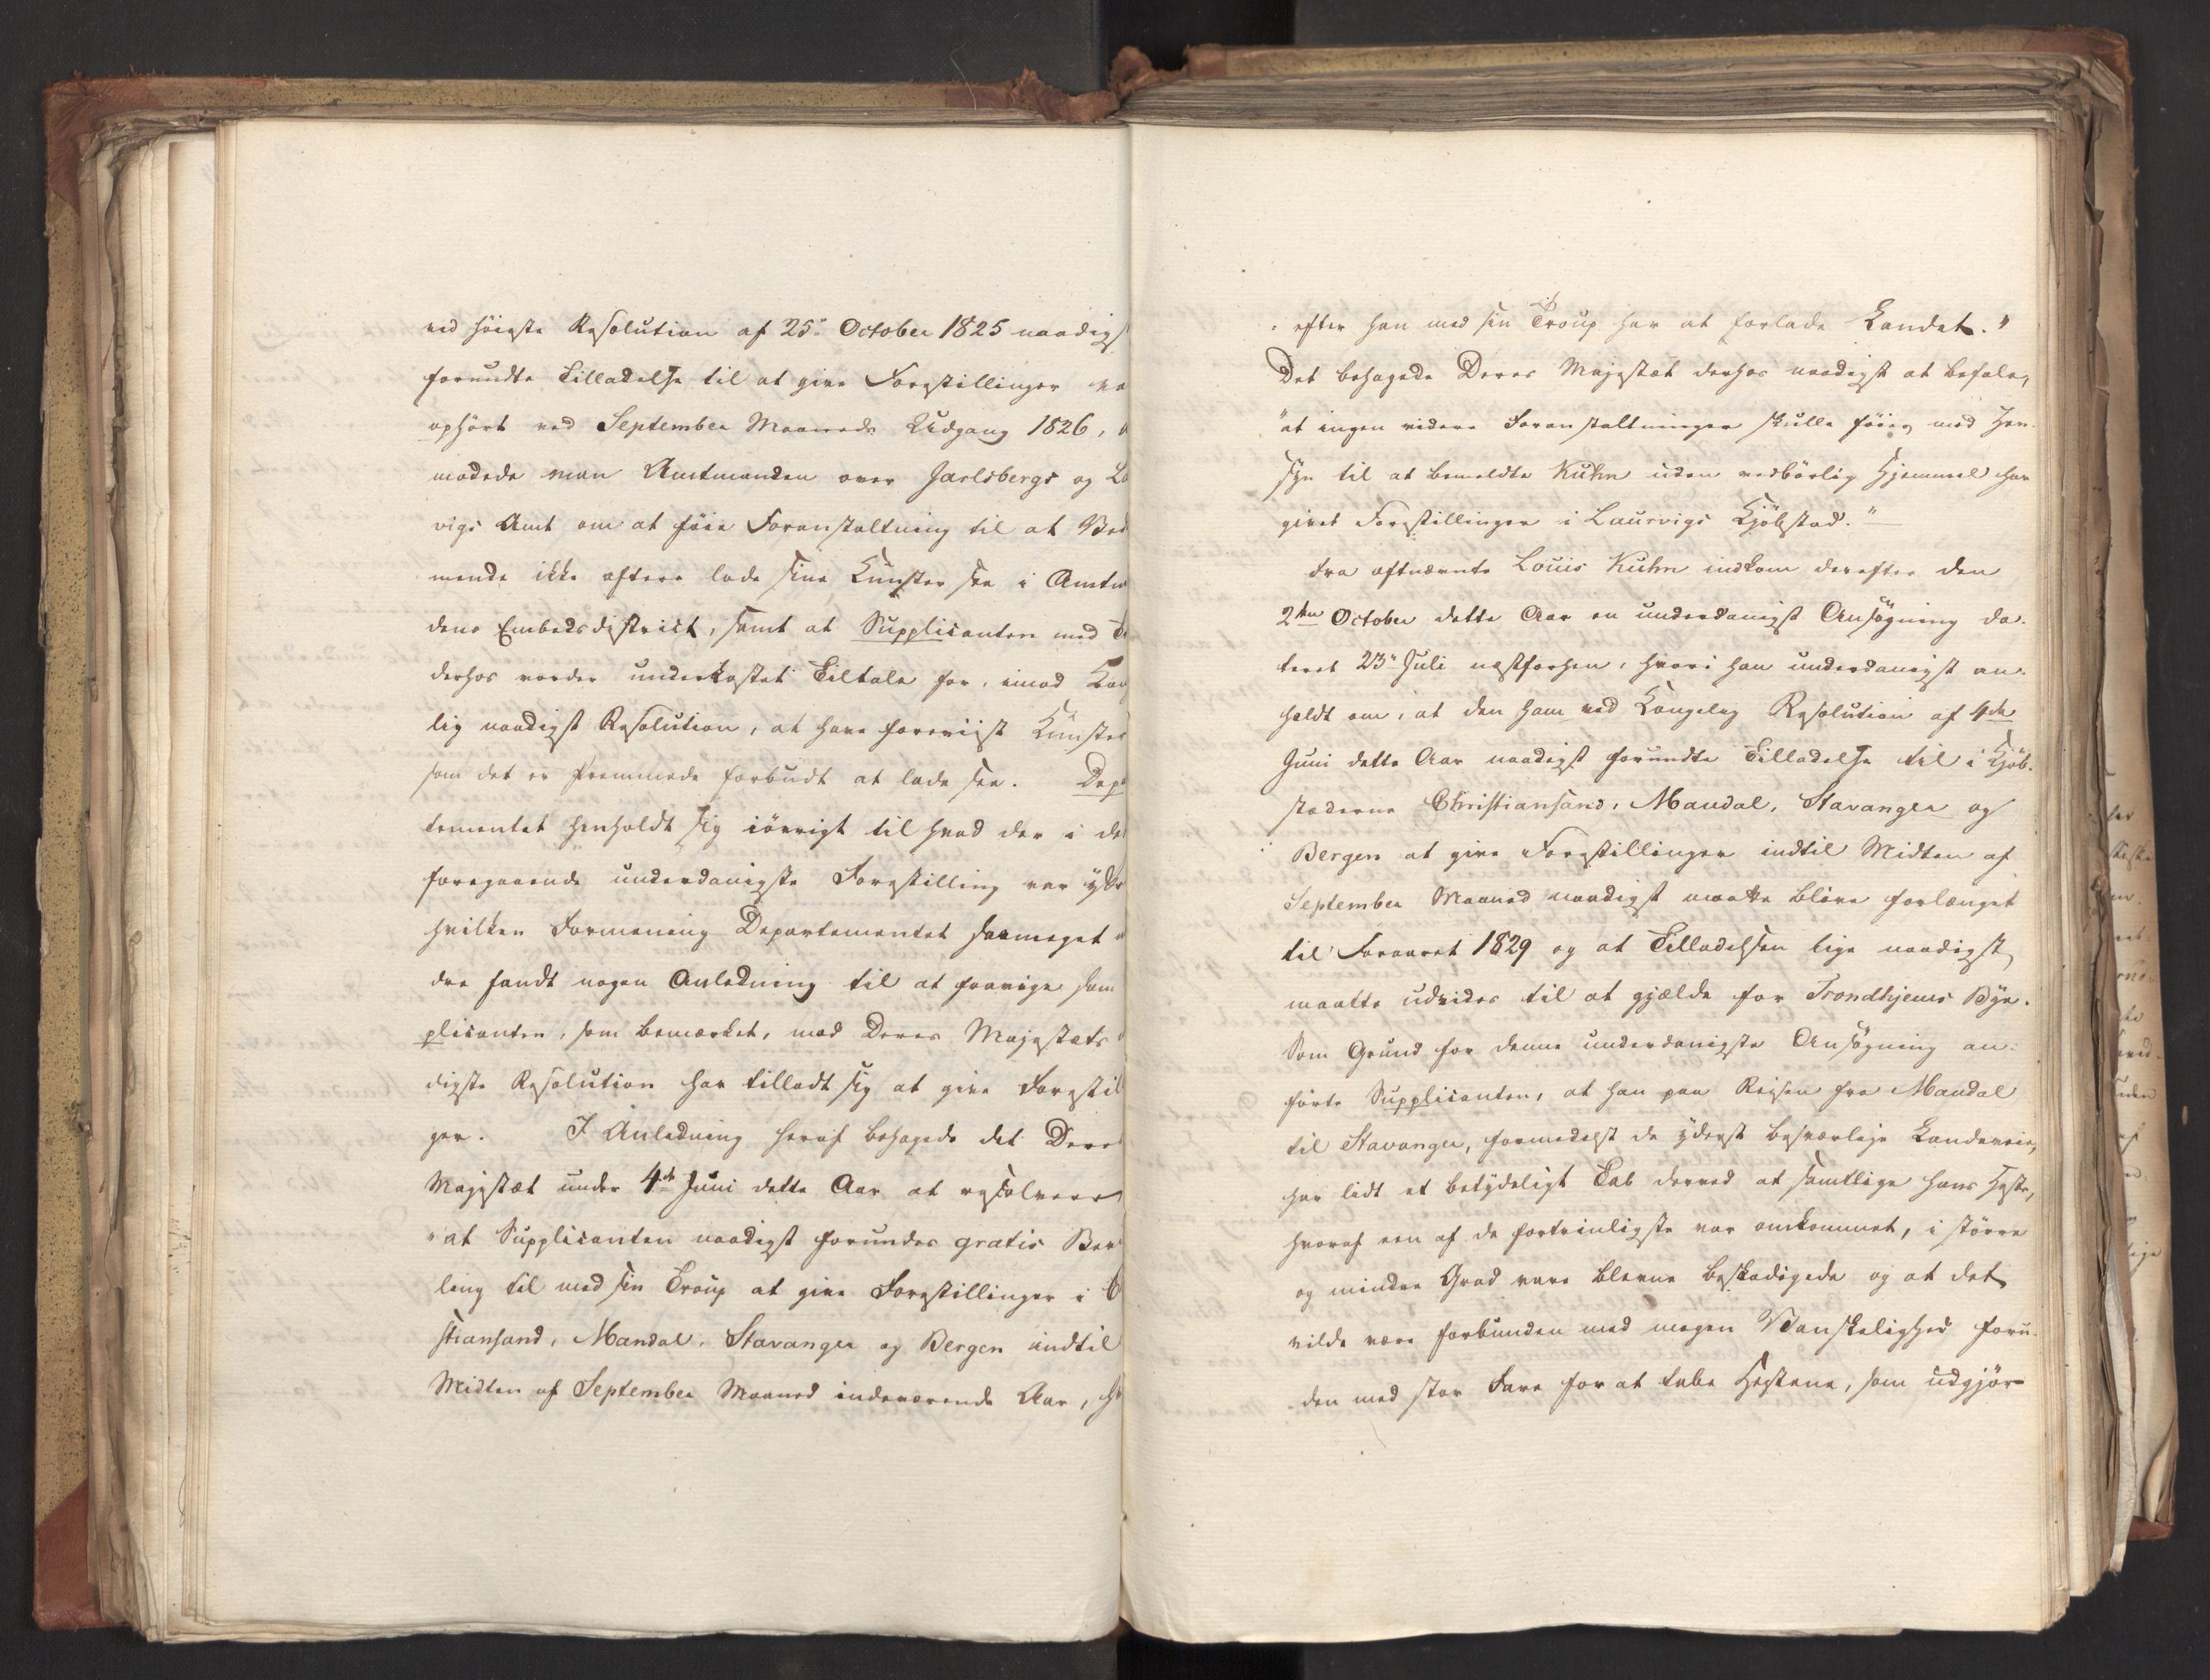 ved høieste Resolution af 25de October 1825 naadigst
forundte Tilladelse til at give Forestillinger va
ophørt ved September Maaneds Udgang 1826, a
modede man Amtmanden over Jarlsbergs og La
vigs Amt om at føie Foranstaltning til at Ved
mende ikke oftere lode sine Kunster see i Amtm
dens Embedsdistrict, samt at Supplicanten med
derhos vorder underkastet Tiltale for, imod Kon
lig naadigst Resolution, at have foreviist Kunster
som det er Fremmede forbudt at lade see. Dep
tementet henholdt sig iøvrigt til hvad der i de
foregaaende underdanigste Forestilling var ytt
hvilken Formening Departementet saameget
dre fandt nogen Anledning til at fravige som
plicanten, som bemærket, mod Deres Majestæts
digste Resolution har tilladt sig at give Forestil
ger. I Anledning heraf behagede det Deres
Majestæt under 4de Juni dette Aar at resolvere
"at Supplicanten naadigst forundes gratis Bev
ling til med sin Troup at give Forestillinger i C
stiansand, Mandal, Stavanger og Bergen indtil
Midten af September Maaned indeværende Aar, hv
"efter han med sin Troup har at forlade Landet."
Det behagede Deres Majestæt derhos naadigst at befale,
"at ingen videre Foranstaltninger skulle føies med Hen-
syn til at bemeldte Kuhn uden vedbørlig Hjemmel har
givet Forestillinger i Laurvigs Kjøbstad."
Fra oftnævnte Louis Kuhn indkom derefter den
2den October dette Aar en underdanigst Ansøgning da-
teret 23de Juli nestforhen, hvori han underdanigst an-
holdt om, at den ham ved Kongelig Resolution af 4de
Juni dette Aar naadigst forundte Tilladelse til i Kjøb-
stæderne Christiansand, Mandal, Stavanger og
Bergen at give Forestillinger indtil Midten af
September Maaned naadigst maatte blive forlænget
til Foraaret 1829 og at Tilladelsen lige naadigst
maatte udvides til at gjælde for Trondhjems Bye.
Som Grund for denne underdanigste Ansøgning an-
førte Supplicanten, at han paa Reisen fra Mandal
til Stavanger, formedelst de yderst besværlige Landeveie,
har lidt et betydeligt Tab derved at samtlige hans Heste,
hvoraf een af de fortrinligste var omkommet, i større
og mindre Grad vare blevne beskadigede og at det
vilde være forbunden med megen Vanskelighed foru-
den med stor Fare for at tabe Hestene, som udgjør